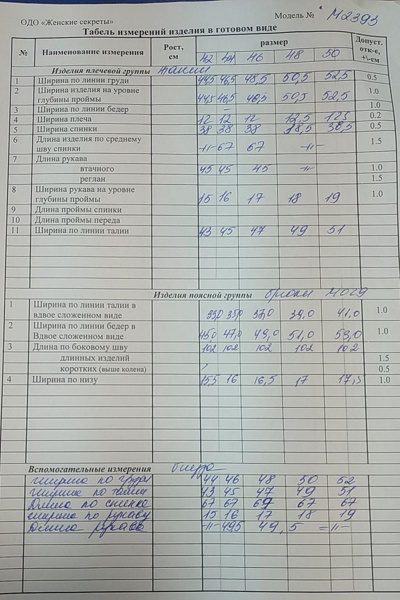 ОДО «Женские секреты» Модель № М2393
Табель измерений изделия в готовом виде
№ Наименование измерения Рост, см размер Допуст. отк-е, +\-см
42 44 46 48 50
Изделия плечевой группы
1 Ширина по линии груди 44,5 46,5 48,5 50,5 52,5 0.5
2 Ширина изделия на уровне глубины проймы 44,5 46,5 48,5 50,5 52,5 1.0
3 Ширина по линии бедер 1.0
4 Ширина плеча 12 12 12 12,5 12,5 0.2
5 Ширина спинки 38 38 38 38,5 38,5 0.5
6 Длина изделия по среднему шву спинки -"- 67 67 -"- 1.5
7 Длина рукава
втачного 45 45 45 -"- 1.0
реглан 1.5
8 Ширина рукава на уровне глубины проймы 15 16 17 18 19 1.0
9 Длина проймы спинки
10 Длина проймы переда
11 Ширина по линии талии 43 45 47 49 51
Изделия поясной группы брюки
1 Ширина по линии талии в вдвое сложенном виде 33,0 35,0 37,0 39,0 41,0 1.0
2 Ширина по линии бедер в Вдвое сложенном виде 45,0 47,0 49,0 51,0 53,0 1.0
3 Длина по боковому шву 102 102 102 102 102
длинных изделий 1.5
коротких (выше колена) 0.5
4 Ширина по низу 15,5 16 16,5 17 17,5 1.0
Вспомогательные измерения
Ширина по груди 44 46 48 50 52
Ширина по талии 43 45 47 49 51
Длина по спинке 67 67 67 67 67
Ширина по рукаву 15 16 17 18 19
Длина рукава -"- 49,5 49,5 -"-